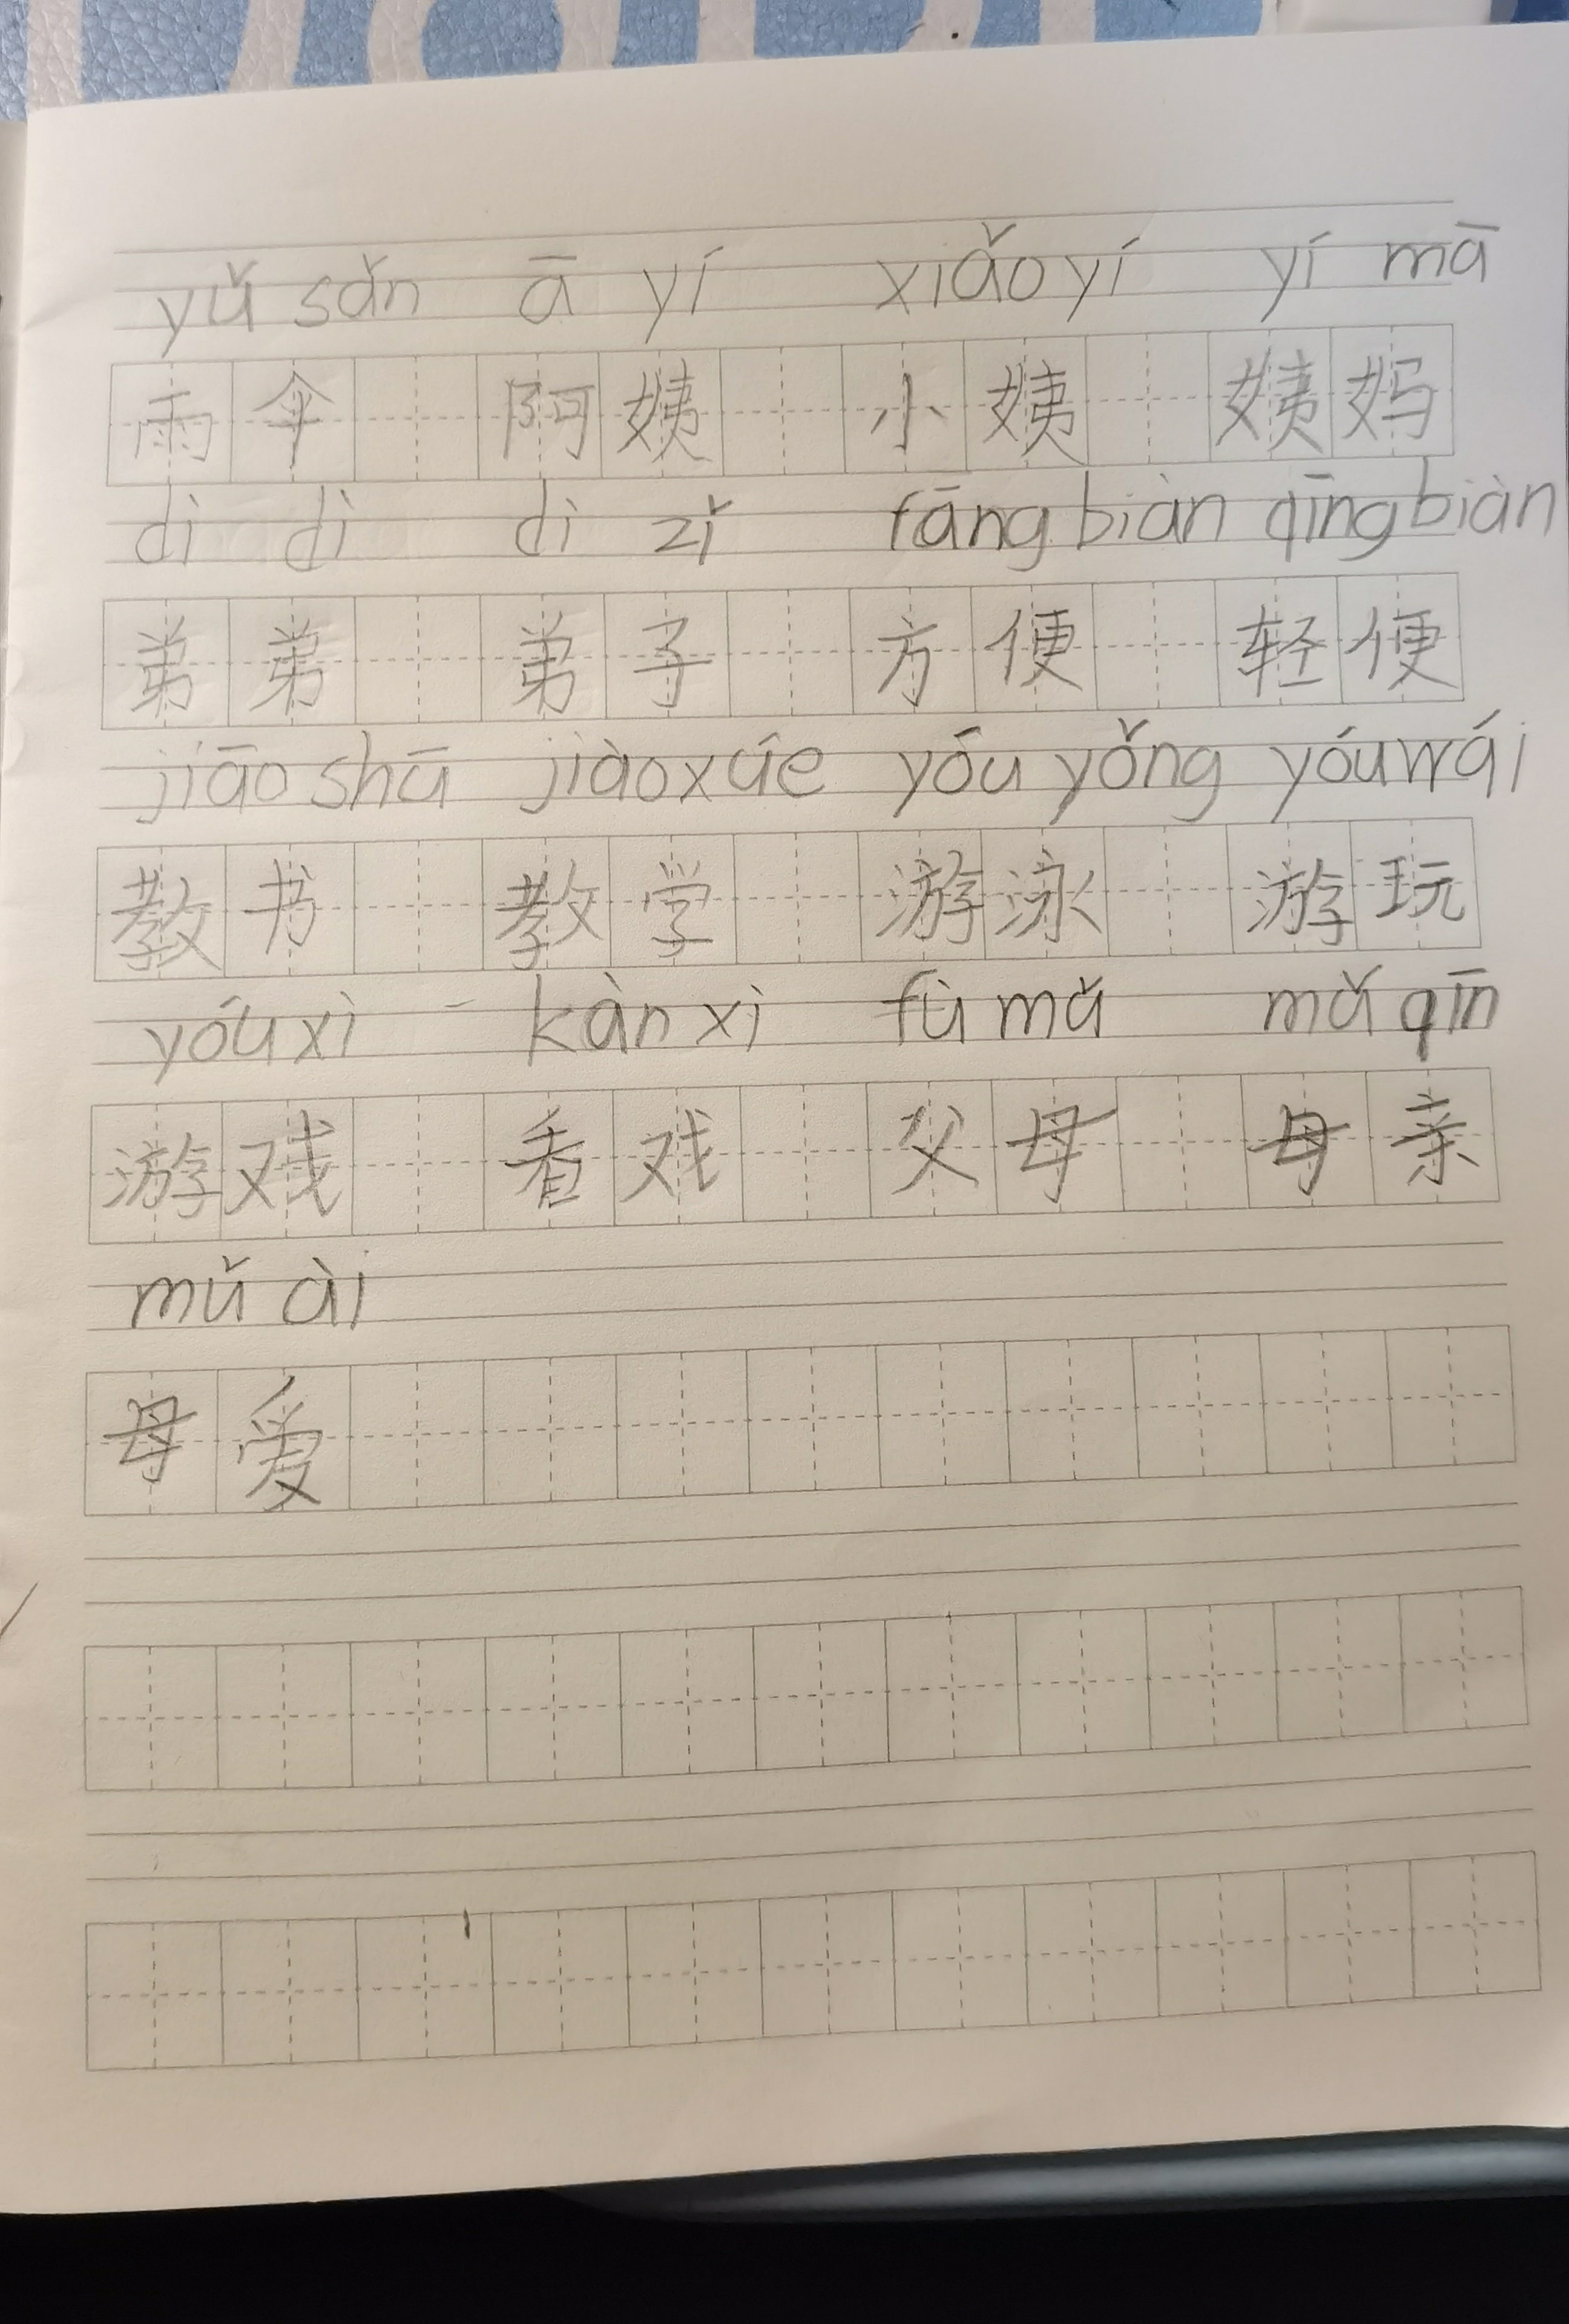 yǔ sǎn ā yí xiǎo yí yí mā
雨伞 阿姨 小姨 姨妈
dì dì dì zǐ fāng biàn qīng biàn
弟弟 弟子 方便 轻便
jiāo shū jiào xúe yóu yǒng yóu wái
教书 教学 游泳 游玩
yóu xì kàn xì fù mǔ mǔ qīn
游戏 看戏 父母 母亲
mǔ ài
母爱